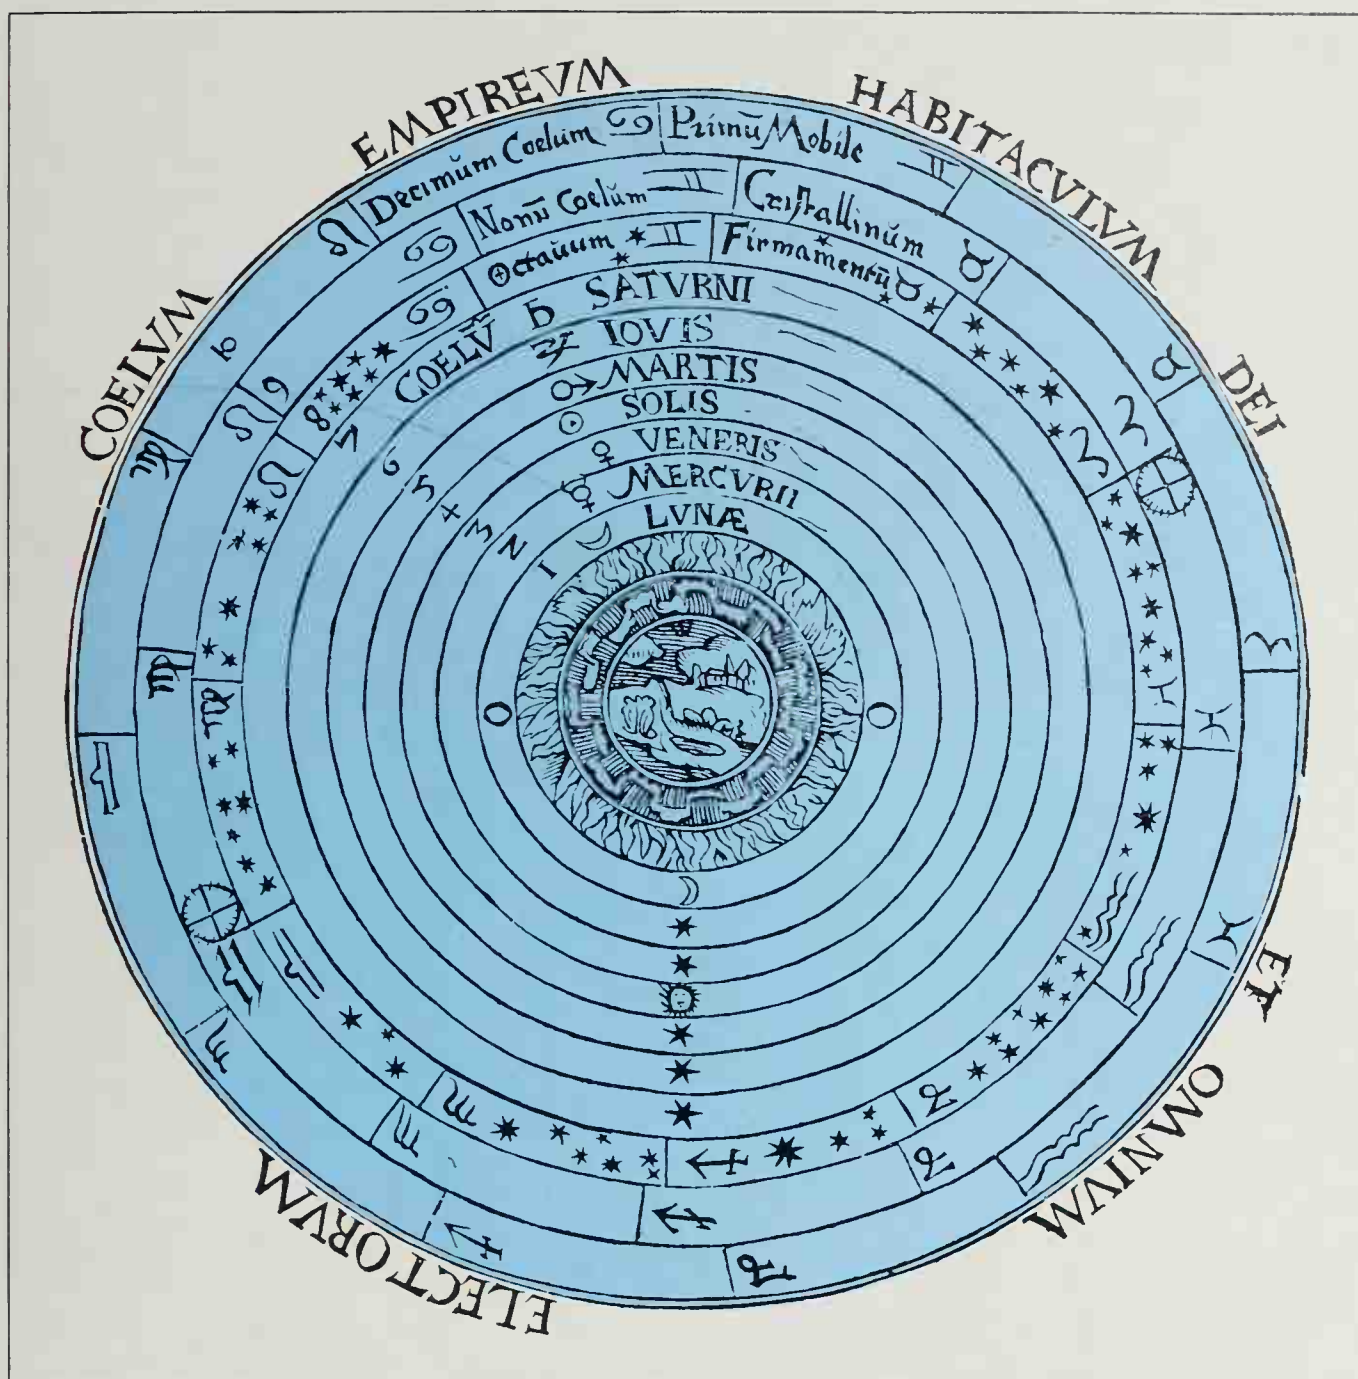 COELVM EMPIREVM HABITACVLVM DEI ET OMNIVM ELECTORVM
10 Decimŭm Coelum Primū Mobile
9 Nonū Coelŭm Cristallinŭm
8 Octaŭum Firmamentū
7 COELV̄ SATVRNI
6 IOVIS
5 MARTIS
4 SOLIS
3 VENERIS
2 MERCVRII
1 LVNÆ